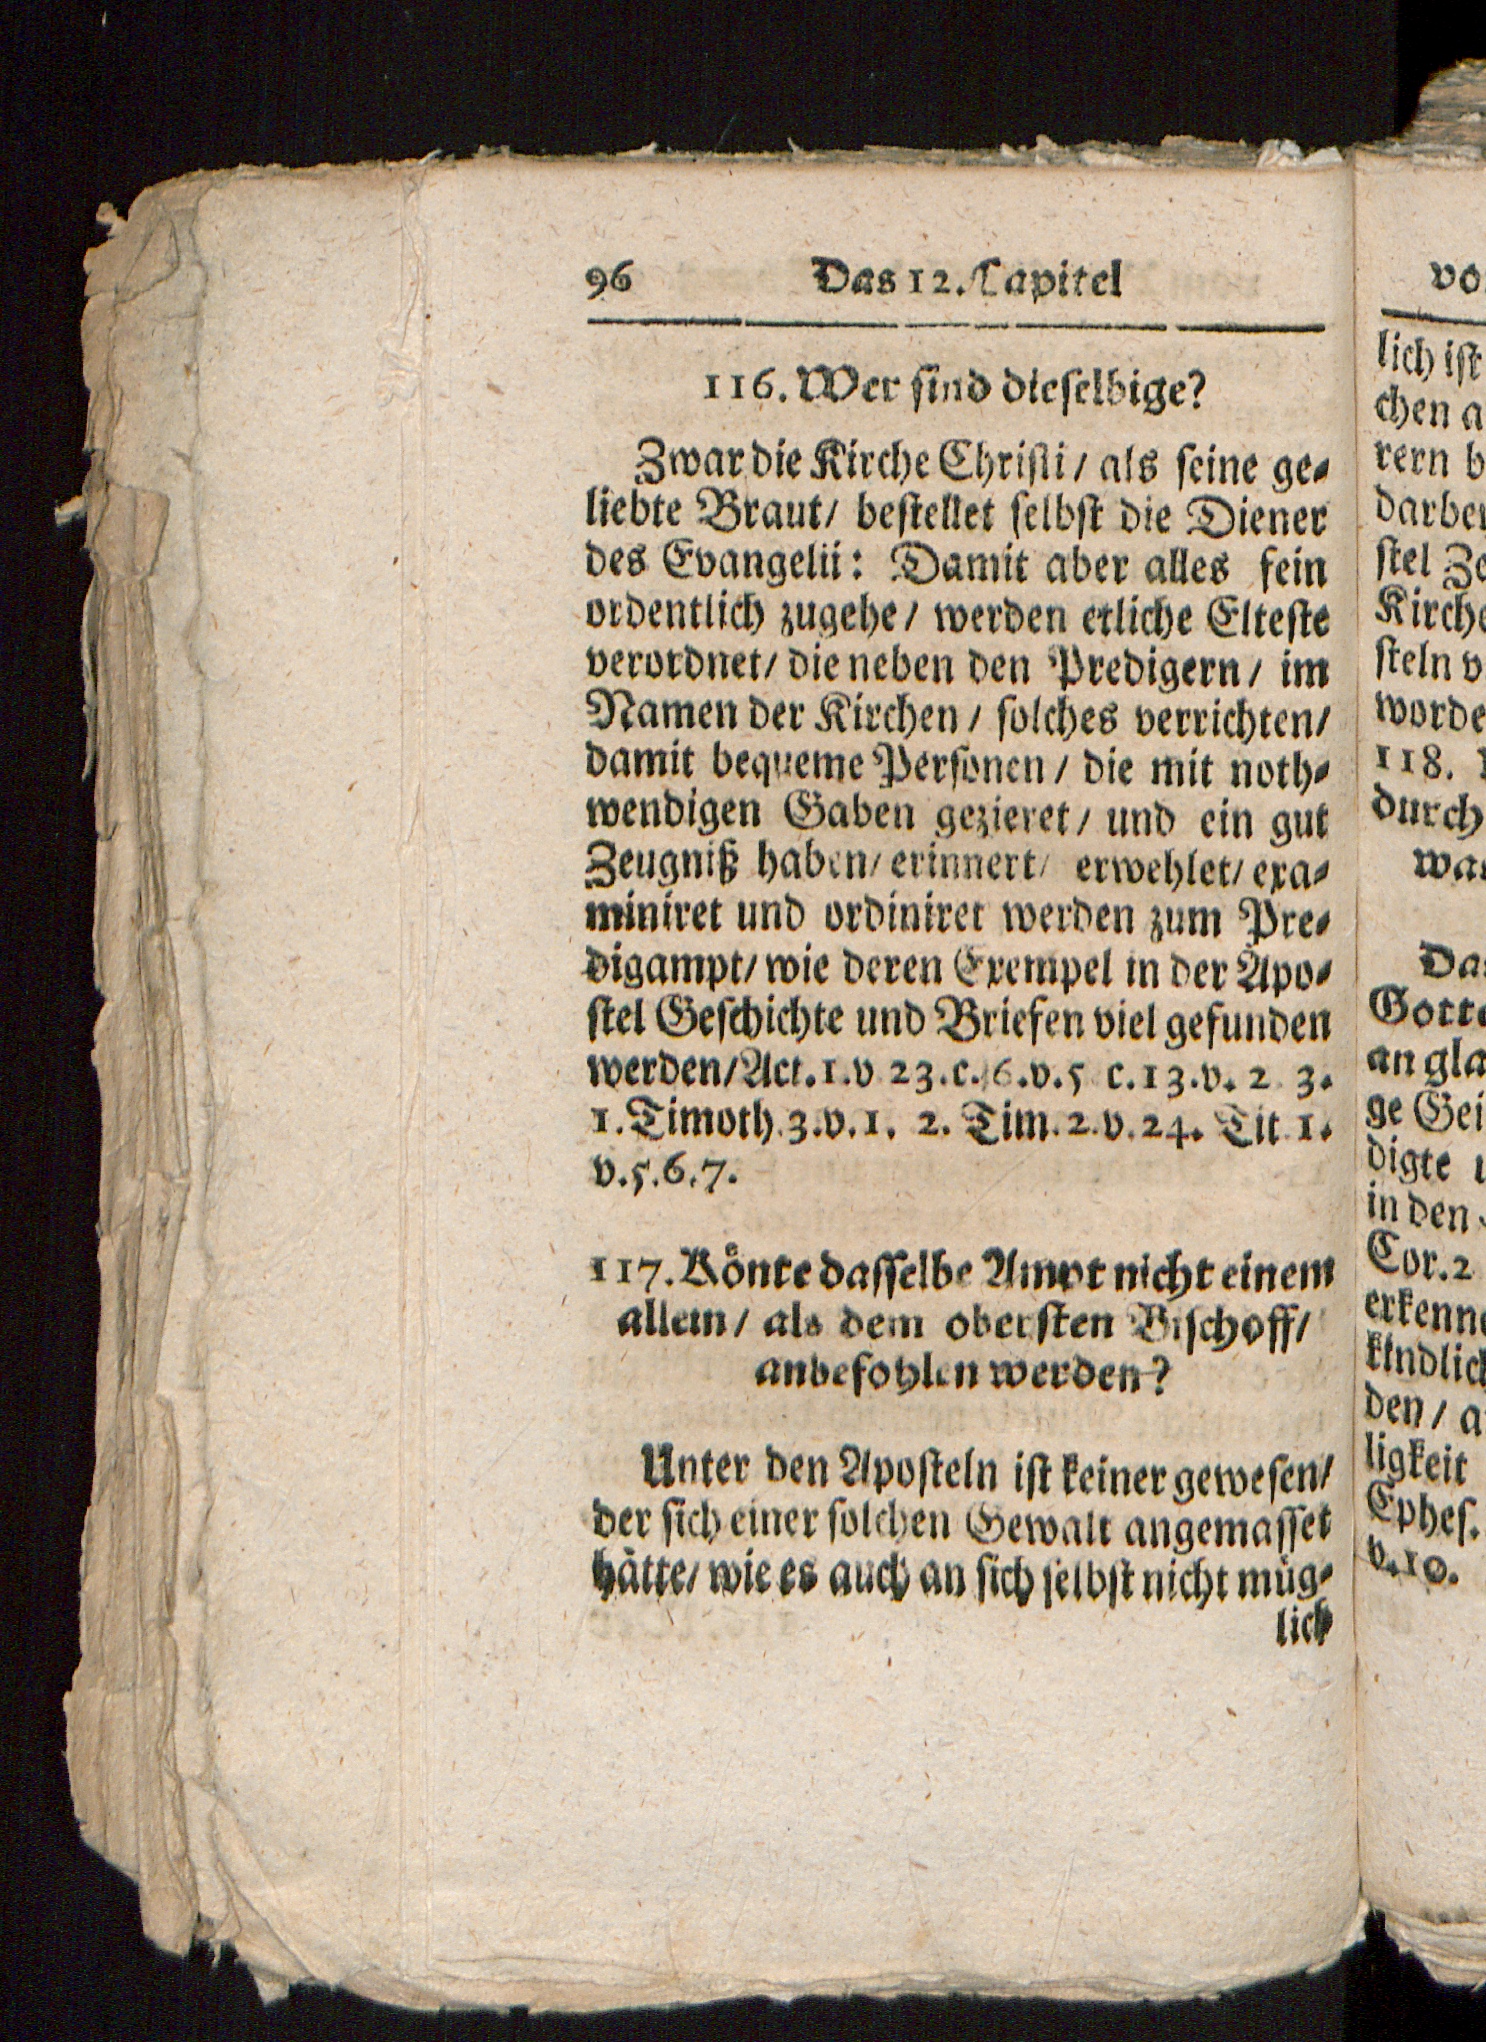 96 Das 12. Capitel
116. Wer ſind dieſelbige?
Zwar die Kirche Chriſti/ als ſeine ge⸗
liebte Braut/ beſtellet ſelbſt die Diener
des Evangelii: Damit aber alles fein
ordentlich zugehe/ werden etliche Elteſte
verordnet/ die neben den Predigern/ im
Namen der Kirchen/ ſolches verrichten/
damit bequeme Perſonen/ die mit noth⸗
wendigen Gaben gezieret/ und ein gut
Zeugniß haben/ erinnert/ erwehlet/ exa⸗
miniret und ordiniret werden zum Pre⸗
digampt/ wie deren Exempel in der Apo⸗
ſtel Geſchichte und Briefen viel gefunden
werden/ Act. 1. v 23. c. 6. v. 5 c. 13. v. 2 3.
1. Timoth. 3. v. 1. 2. Tim. 2. v. 24. Tit 1.
v. 5. 6. 7.
117. Koͤnte daſſelbe Ampt nicht einem
allein/ als dem oberſten Biſchoff/
anbefohlen werden?
Unter den Apoſteln iſt keiner geweſen/
der ſich einer ſolchen Gewalt angemaſſet
haͤtte/ wie es auch an ſich ſelbſt nicht muͤg⸗
lich
lich iſt
chen a
rern b
ſtel Ze
Kirche
ſteln v
worde
118.
durch
Gotte
an gla
ge Gei
digte
in den
Cor. 2
erkenne
kindlich
den/ a
ligkeit
Epheſ.
v. 10.